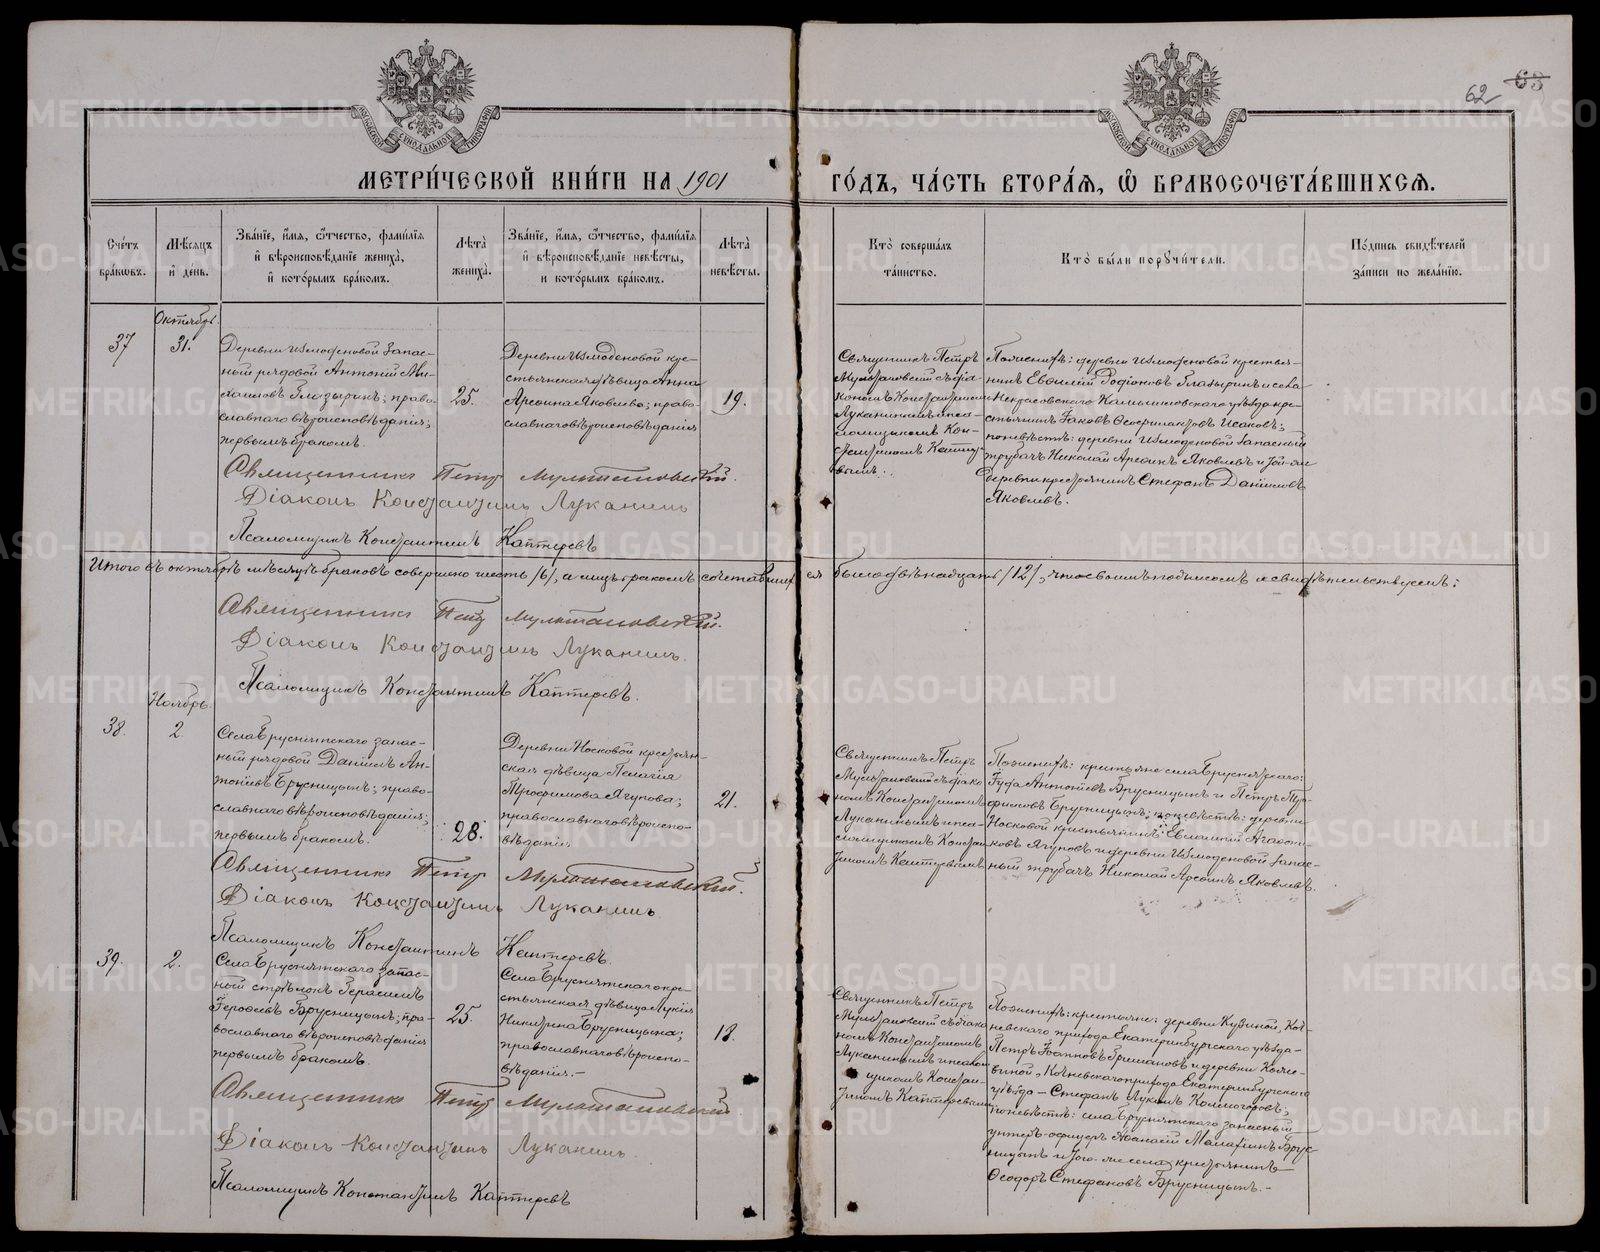 62
63
МЕТРИ́ЧЕСКОЙ КНИ́ГИ НА 1901 ГО́ДЪ, ЧА́СТЬ ВТОРА́Я, Ѽ БРАКОСОЧЕТА́ВШИХСЯ.
Сче́тъ бра́ковъ.
Мѣ́сяцъ и҆ де́нь.
Зва́нїе, и҆́мя, ѻ҆́тчество, фами́лїя и҆ вѣроисповѣ́данїе жениха̀, и҆ кото́рымъ бра́комъ.
Лѣ́та̀ жениха̀.
Зва́нїе, и҆́мя, ѻ҆́тчество, фами́лїя и҆ вѣроисповѣ́данїе невѣ́сты, и кото́рымъ бра́комъ.
Лѣ́та̀ невѣ́сты.
Кто̀ соверша́лъ та́инство.
Кто̀ бы́ли порꙋчи́тели.
По́дпись свидѣ́телей за́писи по жела́нїю.
Октябрь.
37
31.
Деревни Измоденовой запас-
ный рядовой Антоній Ми-
хаиловъ Глазыринъ; право-
славнаго вѣроисповѣданія;
первымъ бракомъ.
25.
Деревни Измоденовой кре-
стьянская дѣвица Анна
Арсеньева Яковлева; право-
славнаго вѣроисповѣданія
19.
Священникъ Петръ
Мультановскій съ діа-
кономъ Константиномъ
Луканинымъ и пса-
ломщикомъ Кон-
стантиномъ Каптер-
вымъ.
По женихѣ: деревни Измоденовой крестья-
нинъ Евѳимій Родіоновъ Глазыринъ и села
Некрасовскаго Камышловскаго уѣзда кре-
стьянинъ Іаковъ Исаковъ;
по невѣстѣ: деревни Измоденовой запасный
трубачъ Николай Арсеньевъ Яковлевъ и той-же
деревни крестьянинъ Стефанъ Даніиловъ
Яковлевъ.
Священникъ Петръ Мультановскій.
Діаконъ Константинъ Луканинъ
Псаломщикъ Константинъ Каптеревъ
Итого въ октябрѣ мѣсяцѣ браковъ совершено шесть /6/, а лицъ бракомъ сочетавшихся было двѣнадцать /12/, что своимъ подписомъ и свидѣтельствуемъ:
Священникъ Петръ Мультановскій.
Діаконъ Константинъ Луканинъ.
Псаломщикъ Константинъ Каптеревъ.
Ноябрь
38.
2
Села Бруснятскаго запас-
ный рядовой Даніилъ Ан-
тоніевъ Брусницынъ; право-
славнаго вѣроисповѣданія;
первымъ бракомъ.
28.
Деревни Носковой крестьян-
ская дѣвица Пелагія
Трофимова Ягупова;
православнаго вѣроиспо-
вѣданія
21.
Священникъ Петръ
Мультановскій съ діако
номъ Константиномъ
Луканинымъ и пса-
ломщикомъ Констан
тиномъ Каптеревымъ
По женихѣ: крестьяне села Бруснятскаго:
Іуда Антоніевъ Брусницынъ и Петръ
Брусницынъ; по невѣстѣ: деревни
Носковой крестьянинъ Евлампій
Ягуповъ и деревни Измоденовой запас-
ный трубачъ Николай Арсеньевъ Яковлевъ.
Священникъ Петръ Мультановскій.
Діаконъ Константинъ Луканинъ.
Псаломщикъ Константинъ Каптеревъ.
39.
2.
Села Бруснятскаго запас-
ный стрѣлокъ Герасимъ
Брусницынъ; пра-
вославнаго вѣроисповѣданія
первымъ бракомъ.
25.
Села Бруснятскаго кре-
стьянская дѣвица Лукія
Никитина Брусницына;
православнаго вѣроиспо-
вѣданія.-
18.
Священникъ Петръ
Мультановскій съ діако
номъ Константиномъ
Луканинымъ и псалом
щикомъ Констан-
тиномъ Каптеревымъ
По женихѣ: крестьяне: деревни
прихода Екатеринбургскаго уѣзда-
Петръ Іоанновъ и деревни
прихода Екатеринбургскаго
уѣзда - Стефанъ Лукинъ Колмогоровъ;
по невѣстѣ: села Бруснятскаго запасный
унтеръ-офицеръ Аѳанасій Брус-
ницынъ и того-же села крестьянинъ
Ѳеодоръ Стефановъ Брусницынъ.-
Священникъ Петръ Мультановскій
Діаконъ Константинъ Луканинъ.
Псаломщикъ Константинъ Каптеревъ
METRIKI.GASO-URAL.RU